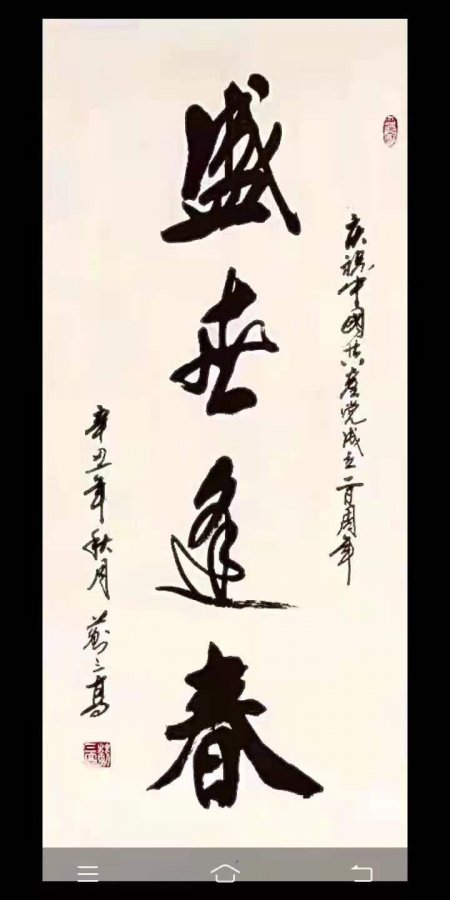 庆祝中國共産党成立一百周年
盛世逢春
辛丑年秋月